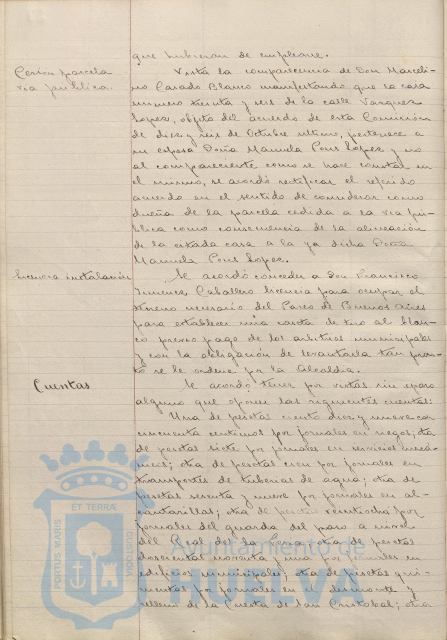 que hubieran de emplearse.
Cesion parcela
via publica.
Vista la comparecencia de Don Marceli-
no Casado Blanco manifestando que la casa
numero treinta y seis de la calle Vazquez
Lopez, objeto del acuerdo de esta Comision
de diez y seis de Octubre ultimo, pertenece a
su esposa Doña Manuela Pons Lopez y no
al compareciente como se hace constar en
el mismo, se acordó rectificar el referido
acuerdo en el sentido de considerar como
dueña de la parcela cedida a la via pú-
blica como consecuencia de la alineación
de la citada casa a la ya dicha Doña
Manuela Pons Lopez.
licencia instalación
Se acordó conceder a Don Francisco
Jimenez Caballero licencia para ocupar el
terreno necesario del Paseo de Buenos Aires
para establecer una caseta de tiro al blan-
co previo pago de los arbitrios municipales
y con la obligación de levantarla tan pron-
to se le ordene por la Alcaldia.
Cuentas
Se acordó tener por vistas sin reparo
alguno que oponer las siguientes cuentas:
Una de pesetas ciento diez y nueve con
cincuenta centimos por jornales en riegos; otra
de pesetas siete por jornales en servicios
otra de pesetas cien por jornales en
transportes de tuberias de agua; otra de
pesetas sesenta y nueve por jornales en al-
cantarillas; otra de pesetas veintiocho por
jornales del guarda del paso a nivel
del Real de la Feria; otra de pesetas
doscientas noventa y una por jornales en
edificios municipales; otra de pesetas qui-
nientas por jornales en el desmonte y
relleno de la Cuesta de San Cristobal; otra
PORTUS MARIS
ET TERRAE
CUSTODIA
Ayuntamiento de
HUELVA